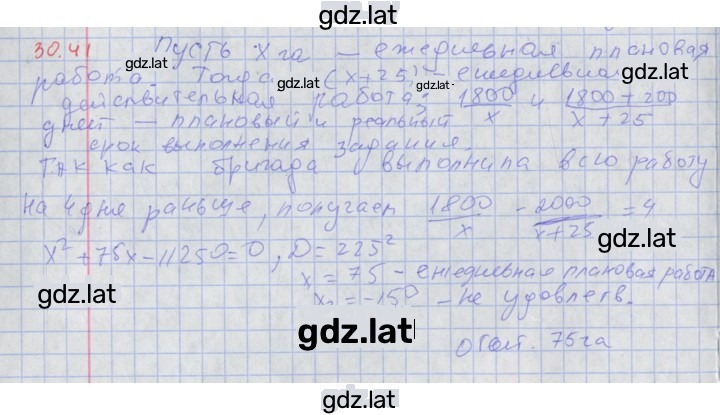 gdz.lat
30.41 Пусть x га – ежедневная плановая
работа. Тогда (x+25) – ежедневная
действительная работа; 1800/x и 1800+200/x+25
дней – плановый и реальный
срок выполнения задания.
Так как бригада выполнила всю работу
на 4 дня раньше, получаем 1800/x - 2000/x+25 = 4
x² + 75x - 11250 = 0, D = 225²
x = 75 - ежедневная плановая работа
x₂ = -150 - не удовлетв.
Ответ. 75 га
gdz.lat
gdz.lat
gdz.lat
gdz.lat
gdz.lat
gdz.lat
gdz.lat
gdz.lat
gdz.lat
gdz.lat